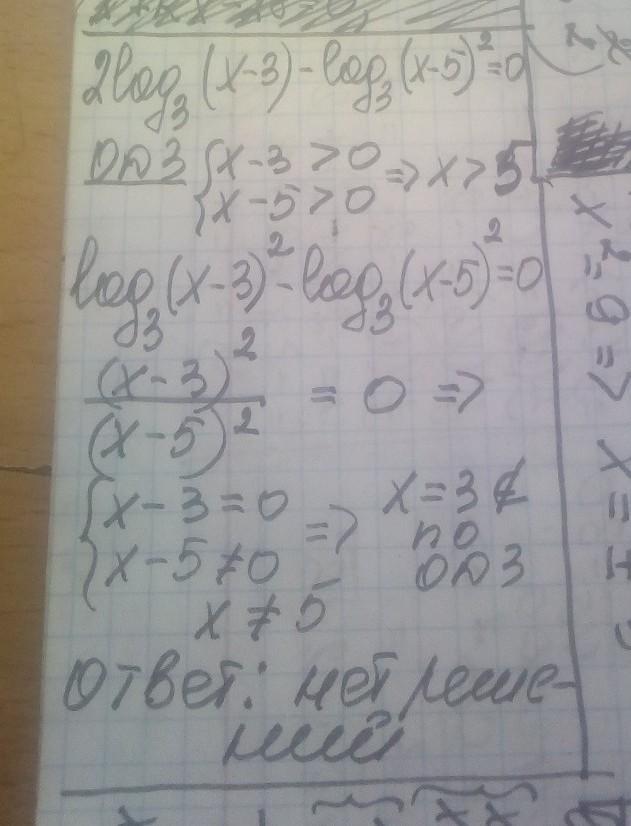 2log₃(x-3)-log₃(x-5)²=0
ОДЗ {x-3>0 => x>5
{x-5>0
log₃(x-3)²-log₃(x-5)²=0
(x-3)²/(x-5)² = 0 =>
{x-3=0 => x=3 ∉
{x-5≠0 по
ОДЗ
x≠5
Ответ: нет реше-
ний